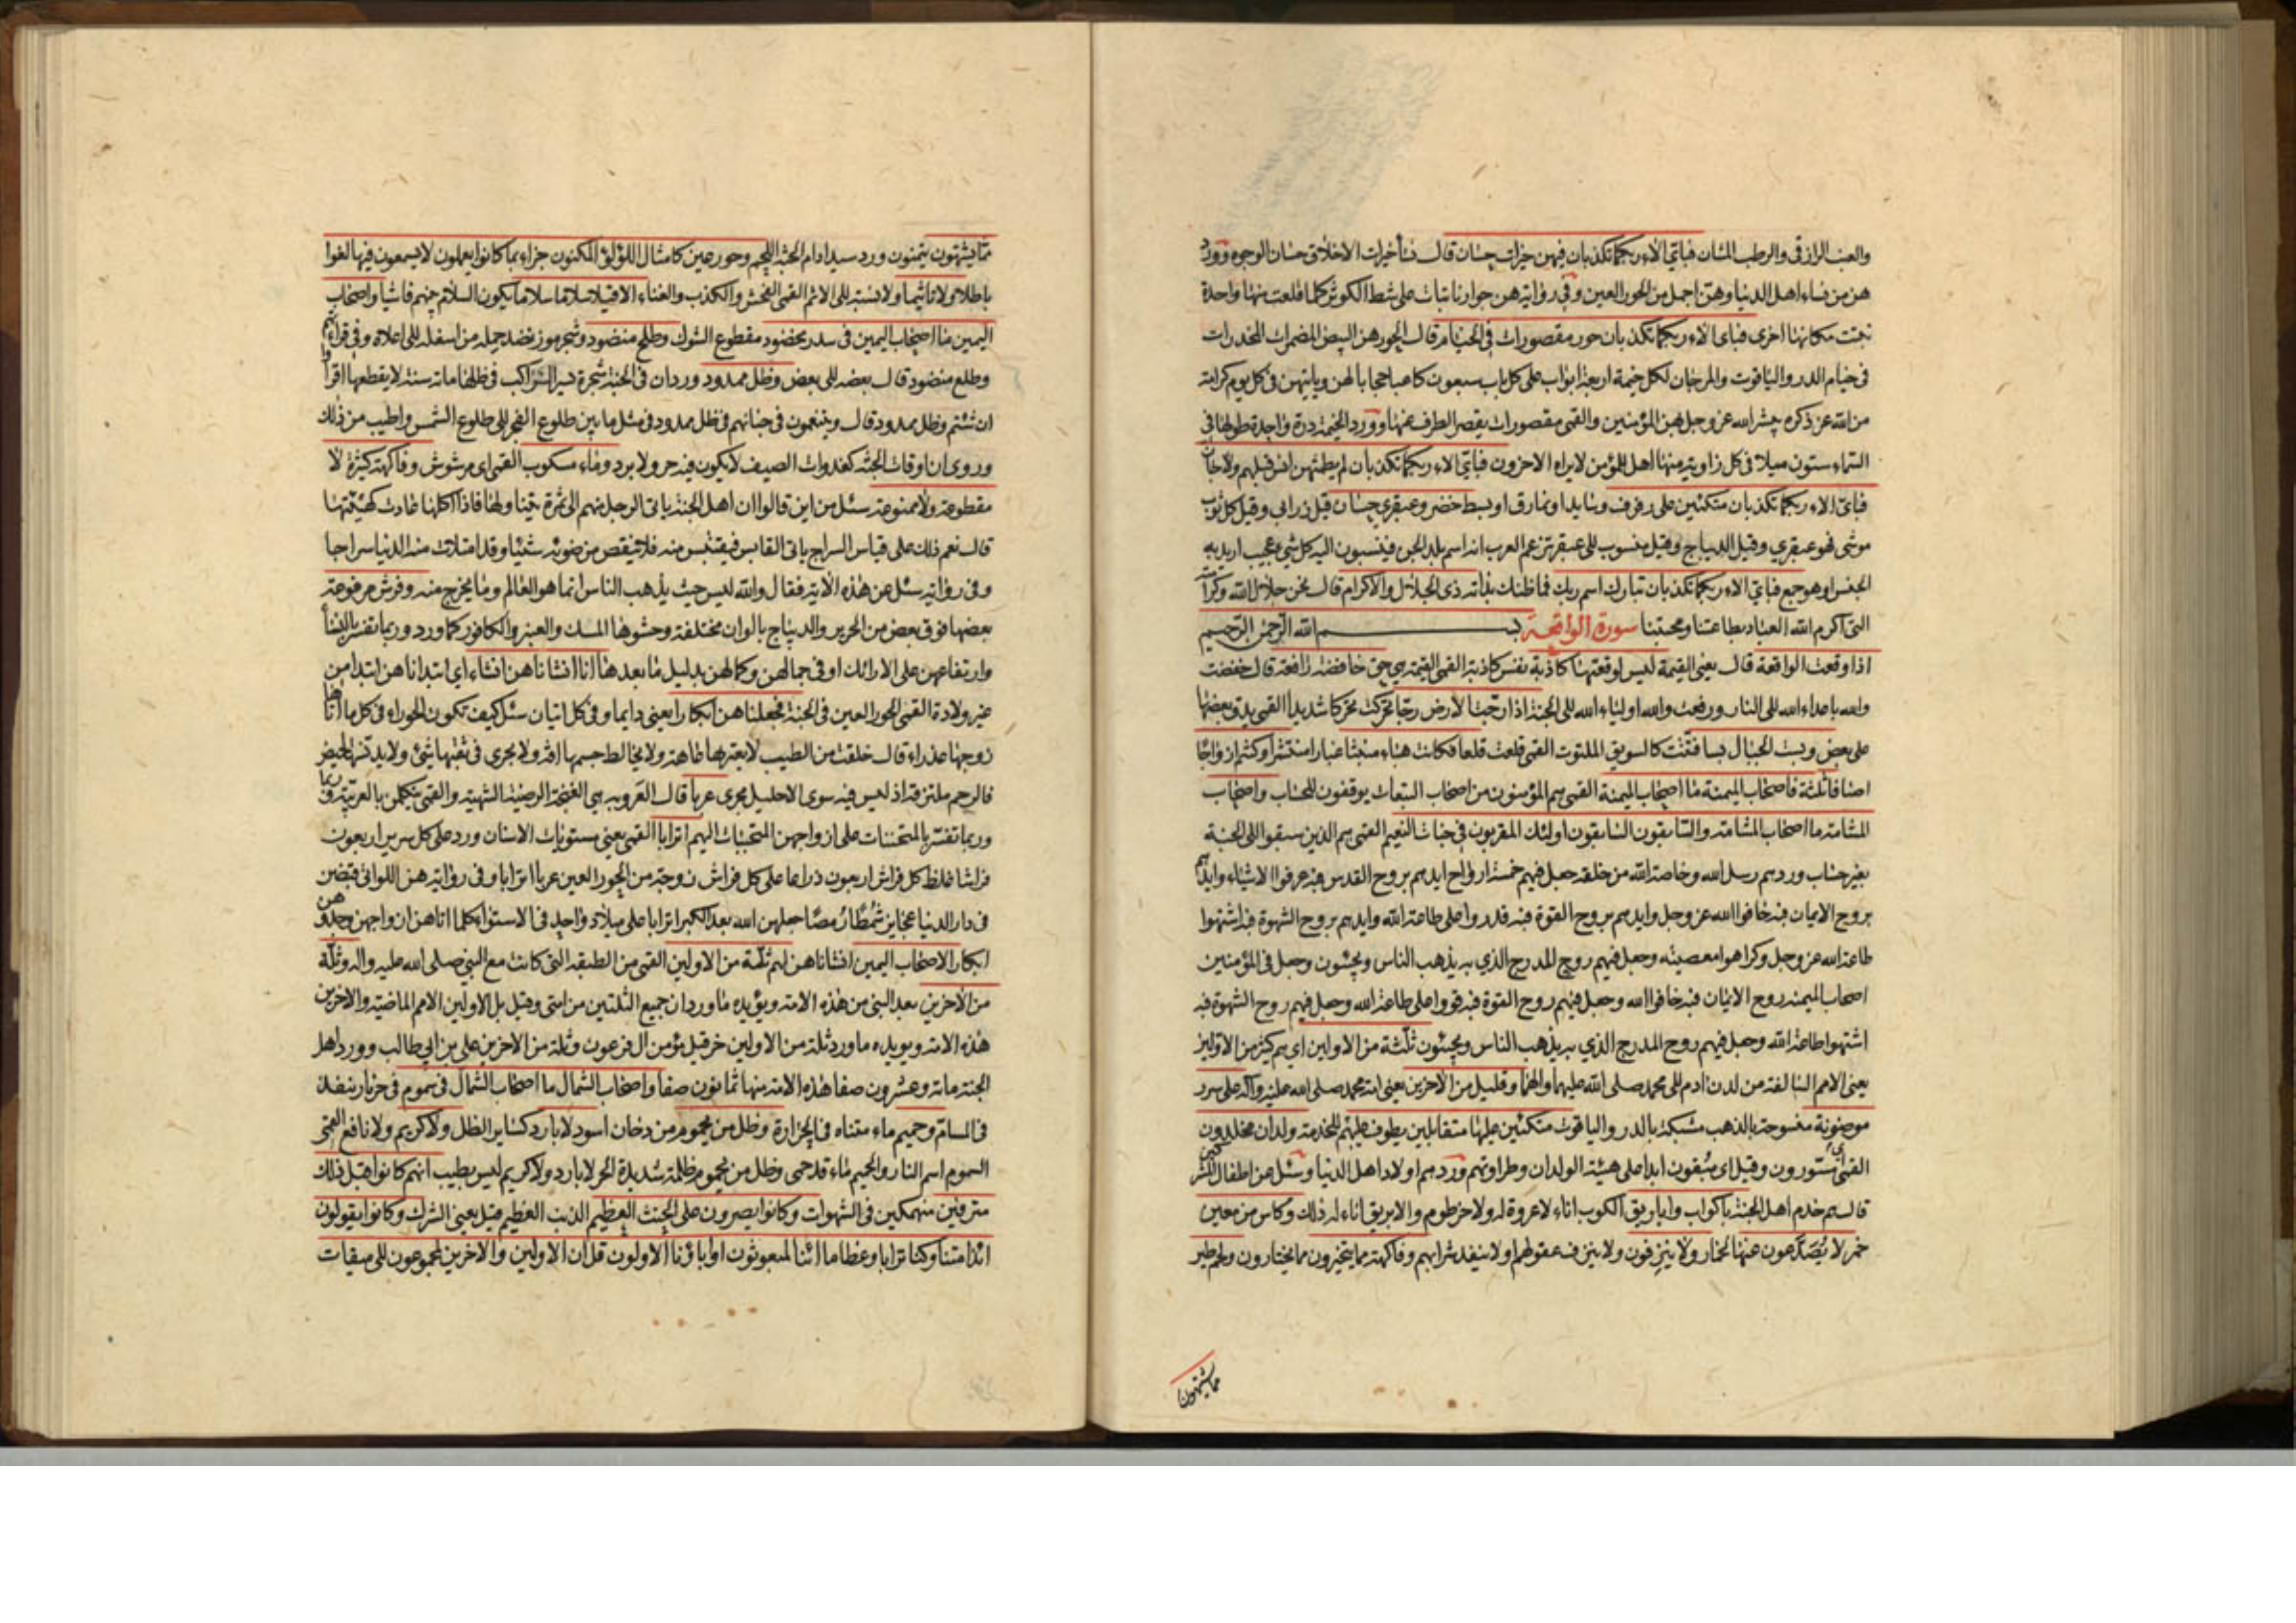 والعنب الرازقي والرطب المشان فبأي الاء ربكما تكذبان فيهن خيرات حسان قال نساء خيرات الاخلاق حسان الوجوه وورد
هن من نساء اهل الدنيا وهن اجمل من الحور العين وفي رواية هن جوار نابتات على شط الكوثر كلما قلعت منها واحدة
نبتت مكانها اخرى فباى الاء ربكما تكذبان حور مقصورات في الخيام قال الحور هن البيض المضمرات المخدرات
في خيام الدر والياقوت والمرجان لكل خيمة اربعة ابواب على كل باب سبعون كاعبا حجابا لهن وياتيهن في كل يوم كرامة
من الله عز ذكره يبشر الله عز وجل بهن المؤمنين والقمي مقصورات يقصر الطرف عنها وورد الخيمة درة واحدة طولها في
السماء ستون ميلا في كل زاوية منها اهل للمؤمن لا يراه الاخرون فبأي الاء ربكما تكذبان لم يطمثهن انس قبلهم ولا جان
فبأي الاء ربكما تكذبان متكئين على رفرف وسايد او نمارق او بسط خضر وعبقري حسان قيل زرابي وقيل كل ثوب
موشى فهو عبقري وقيل الديباج وقيل منسوب الى عبقر تزعم العرب انه اسم بلد الجن فينسبون اليه كل شي عجيب اريد به
الجنس او هو جمع فبأي الاء ربكما تكذبان تبارك اسم ربك فما ظنك بذاته ذى الجلال والاكرام قال نحن جلال الله وكرامته
التي اكرم الله العباد بطاعتنا ومحبتنا سورة الواقعة بسم الله الرحمن الرحيم
اذا وقعت الواقعة قال يعني القيمة ليس لوقعتها كاذبة نفس كاذبة القمي القيمة هي حق خافضة رافعة قال خفضت
والله باعداء الله الى النار ورفعت والله اولياء الله الى الجنة اذا رجت الارض رجا حركت تحركا شديدا القمي يدق بعضها
على بعض وبست الجبال بسا فتتت كالسويق الملتوت القمي قلعت قلعا فكانت هباء منبثا غبارا منتشرا وكنتم ازواجا
اصنافا ثلثة فاصحاب الميمنة ما اصحاب الميمنة القمي هم المؤمنون من اصحاب التبعات يوقفون للحساب واصحاب
المشأمة ما اصحاب المشأمة والسابقون السابقون اولئك المقربون في جنات النعيم القمي هم الذين سبقوا الى الجنة
بغير حساب ورد هم رسل الله وخاصة الله من خلقه جعل فيهم خمسة ارواح ايدهم بروح القدس فبه عرفوا الاشياء وايدهم
بروح الايمان فبه خافوا الله عز وجل وايدهم بروح القوة فبه قدروا على طاعة الله وايدهم بروح الشهوة فبه اشتهوا
طاعة الله عز وجل وكرهوا معصيته وجعل فيهم روح المدرج الذي به يذهب الناس ويجيئون وجعل في المؤمنين
اصحاب الميمنة روح الايمان فبه خافوا الله وجعل فيهم روح القوة فبه قووا على طاعة الله وجعل فيهم روح الشهوة فبه
اشتهوا طاعة الله وجعل فيهم روح المدرج الذي به يذهب الناس ويجيئون ثلة من الاولين اي هم كثير من الاولين
يعني الامم السالفة من لدن ادم الى محمد صلى الله عليهما والهما وقليل من الاخرين يعني امة محمد صلى الله عليه وآله على سرر
موضونة منسوجة بالذهب مشبكة بالدر والياقوت متكئين عليها متقابلين يطوف عليهم للخدمة ولدان مخلدون
القمي مستورون وقيل اى مبقون ابدا على هيئة الولدان وطراوتهم ورد هم اولاد اهل الدنيا وسئل عن اطفال المشركين
قال هم خدم اهل الجنة باكواب واباريق الكوب اناء لا عروة له ولا خرطوم والابريق اناء له ذلك وكاس من معين
خمر لا يصدعون عنها الخمار ولا ينزفون ولا ينزف عقولهم او لا ينفد شرابهم وفاكهة مما يتخيرون مما يختارون ولحم طير
مما يشتهون
مما يشتهون يتمنون ورد سيد ادام الجنة اللحم وحور عين كامثال اللؤلؤ المكنون جزاء بما كانوا يعملون لا يسمعون فيها لغوا
باطلا ولا تاثيما ولا نسبة الى الاثم القمي الفحش والكذب والغناء الا قيلا سلاما سلاما يكون السلام بينهم فاشيا واصحاب
اليمين ما اصحاب اليمين في سدر مخضود مقطوع الشوك وطلح منضود وشجر موز نضد حمله من اسفله الى اعلاه وفي قراءتهم
وطلع منضود قال بعضه الى بعض وظل ممدود ورد ان في الجنة شجرة يسير الراكب في ظلها ماة سنة لا يقطعها اقرأوا
ان شئتم وظل ممدود قال ويتنعمون في جنانهم في ظل ممدود في مثل ما بين طلوع الفجر الى طلوع الشمس واطيب من ذلك
وروى ان اوقات الجنة كغدوات الصيف لا يكون فيه حر ولا برد وماء مسكوب القمي اي مرشوش وفاكهة كثيرة لا
مقطوعة ولا ممنوعة سئل من اين قالوا ان اهل الجنة ياتي الرجل منهم الى ثمرة يتناولها فاذا اكلها عادت كهيئتها
قال نعم ذلك على قياس السراج ياتي القابس فيقتبس منه فلا ينقص من ضوئه شيئا وقد امتلات منه الدنيا سراجا
وفي رواية سئل عن هذه الاية فقال والله ليس حيث يذهب الناس انما هو العالم وما يخرج منه وفرش مرفوعة
بعضها فوق بعض من الحرير والديباج بالوان مختلفة وحشوها المسك والعنبر والكافور كما ورد وربما تفسر بالنساء
وارتفاعهن على الارائك او في جمالهن وكمالهن بدليل ما بعدها انا انشاناهن انشاء اي ابتداناهن ابتداء من
غير ولادة القمي الحور العين في الجنة فجعلناهن ابكارا يعني دايما وفي كل اتيان سئل كيف تكون الحوراء في كل ما اتاها
زوجها عذراء قال خلقت من الطيب لا يعتريها عاهة ولا يخالط جسمها افة ولا يجري في ثقبها شئ ولا يدنسها الحيض
فالرحم ملتزقة اذ ليس فيه سوى الاحليل مجرى عربا قال العروبة هي الغنجة الرضية الشهية والقمي يتكلمن بالعربية
وربما تفسر بالمتحننات على ازواجهن المتحببات اليهم اترابا القمي يعني مستويات الاسنان ورد على كل سرير اربعون
فراشا غلظ كل فراش اربعون ذراعا على كل فراش زوجة من الحور العين عربا اترابا وفي رواية هن اللواتي قبضن
في دار الدنيا عجايز شمطا رمصا جعلهن الله بعد الكبر اترابا على ميلاد واحد في الاستواء كلما اتاهن ازواجهن وجدوهن
ابكارا لاصحاب اليمين انشاناهن لهم ثلة من الاولين القمي من الطبقة التي كانت مع النبي صلى الله عليه واله وثلة
من الاخرين بعد النبي من هذه الامة ويؤيده ما ورد ان جميع الثلتين من امتي وقيل بل الاولين الامم الماضية والاخرين
هذه الامة ويويده ما ورد ثلة من الاولين حزقيل مؤمن ال فرعون وثلة من الاخرين علي بن ابي طالب وورد اهل
الجنة ماة وعشرون صفا هذه الامة منها ثمانون صفا واصحاب الشمال ما اصحاب الشمال في سموم في حر نار ينفذ
في المسام وحميم ماء متناه في الحرارة وظل من يحموم من دخان اسود لا بارد كساير الظل ولا كريم ولا نافع القمي
السموم اسم النار والحميم ماء قد حمى وظل من يحموم ظلمة شديدة الحر لا بارد ولا كريم ليس بطيب انهم كانوا قبل ذلك
مترفين منهمكين في الشهوات وكانوا يصرون على الحنث العظيم الذنب العظيم قيل يعني الشرك وكانوا يقولون
ائذا متنا وكنا ترابا وعظاما ائنا لمبعوثون اوابائنا الاولون قل ان الاولين والاخرين لمجموعون الى ميقات